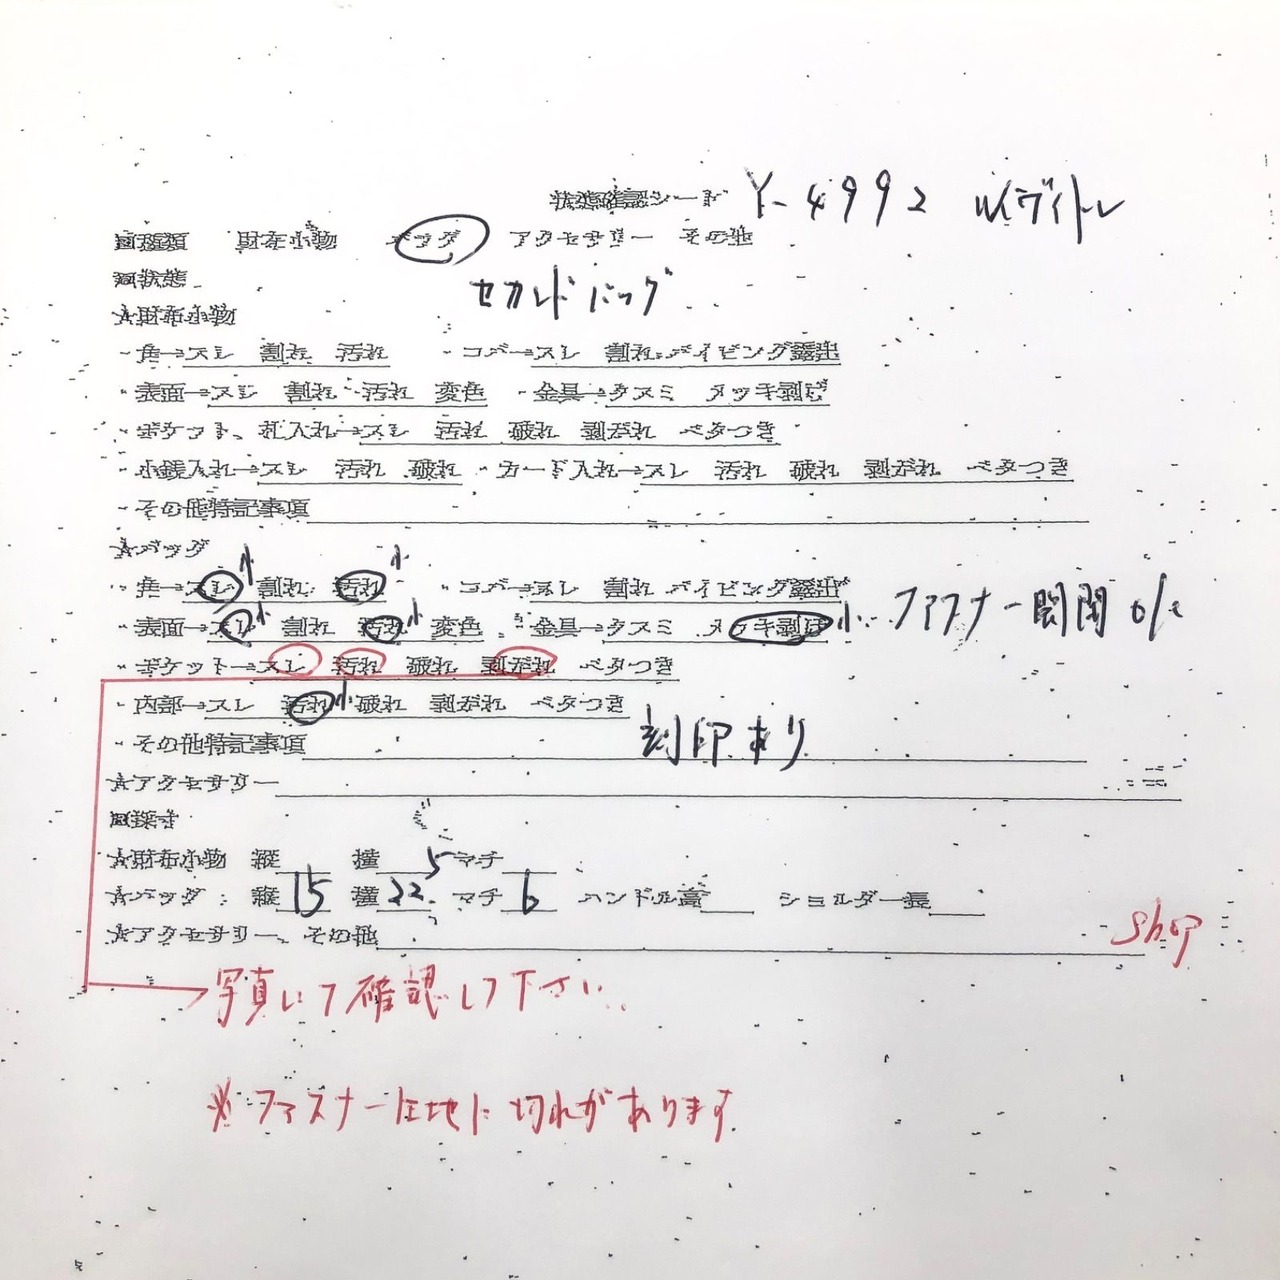 状態確認シート Y-4992 ルイヴィトン
□種類 財布小物 バッグ アクセサリー その他
□状態
セカンドバッグ
★財布小物
・角→スレ 割れ 汚れ ・コバ→スレ 割れ パイピング露出
・表面→スレ 割れ 汚れ 変色 ・金具→クスミ メッキ剥げ
・ポケット、札入れ→スレ 汚れ 破れ 剥がれ ベタつき
・小銭入れ→スレ 汚れ 破れ ・カード入れ→スレ 汚れ 破れ 剥がれ ベタつき
・その他特記事項
★バッグ
・角→スレ小 割れ 汚れ小 ・コバ→スレ 割れ パイピング露出
・表面→スレ小 割れ 汚れ小 変色 ・金具→クスミ メッキ剥げ小 ファスナー開閉ok
・ポケット→スレ 汚れ 破れ 剥がれ ベタつき
・内部→スレ 汚れ小 破れ 剥がれ ベタつき
・その他特記事項 刻印あり
★アクセサリー
□採寸
★財布小物 縦 横 マチ
★バッグ: 縦 15 横 22.5 マチ 6 ハンドル高 ショルダー長
★アクセサリー、その他
shop
写真にて確認して下さい
※ファスナー生地に切れがあります